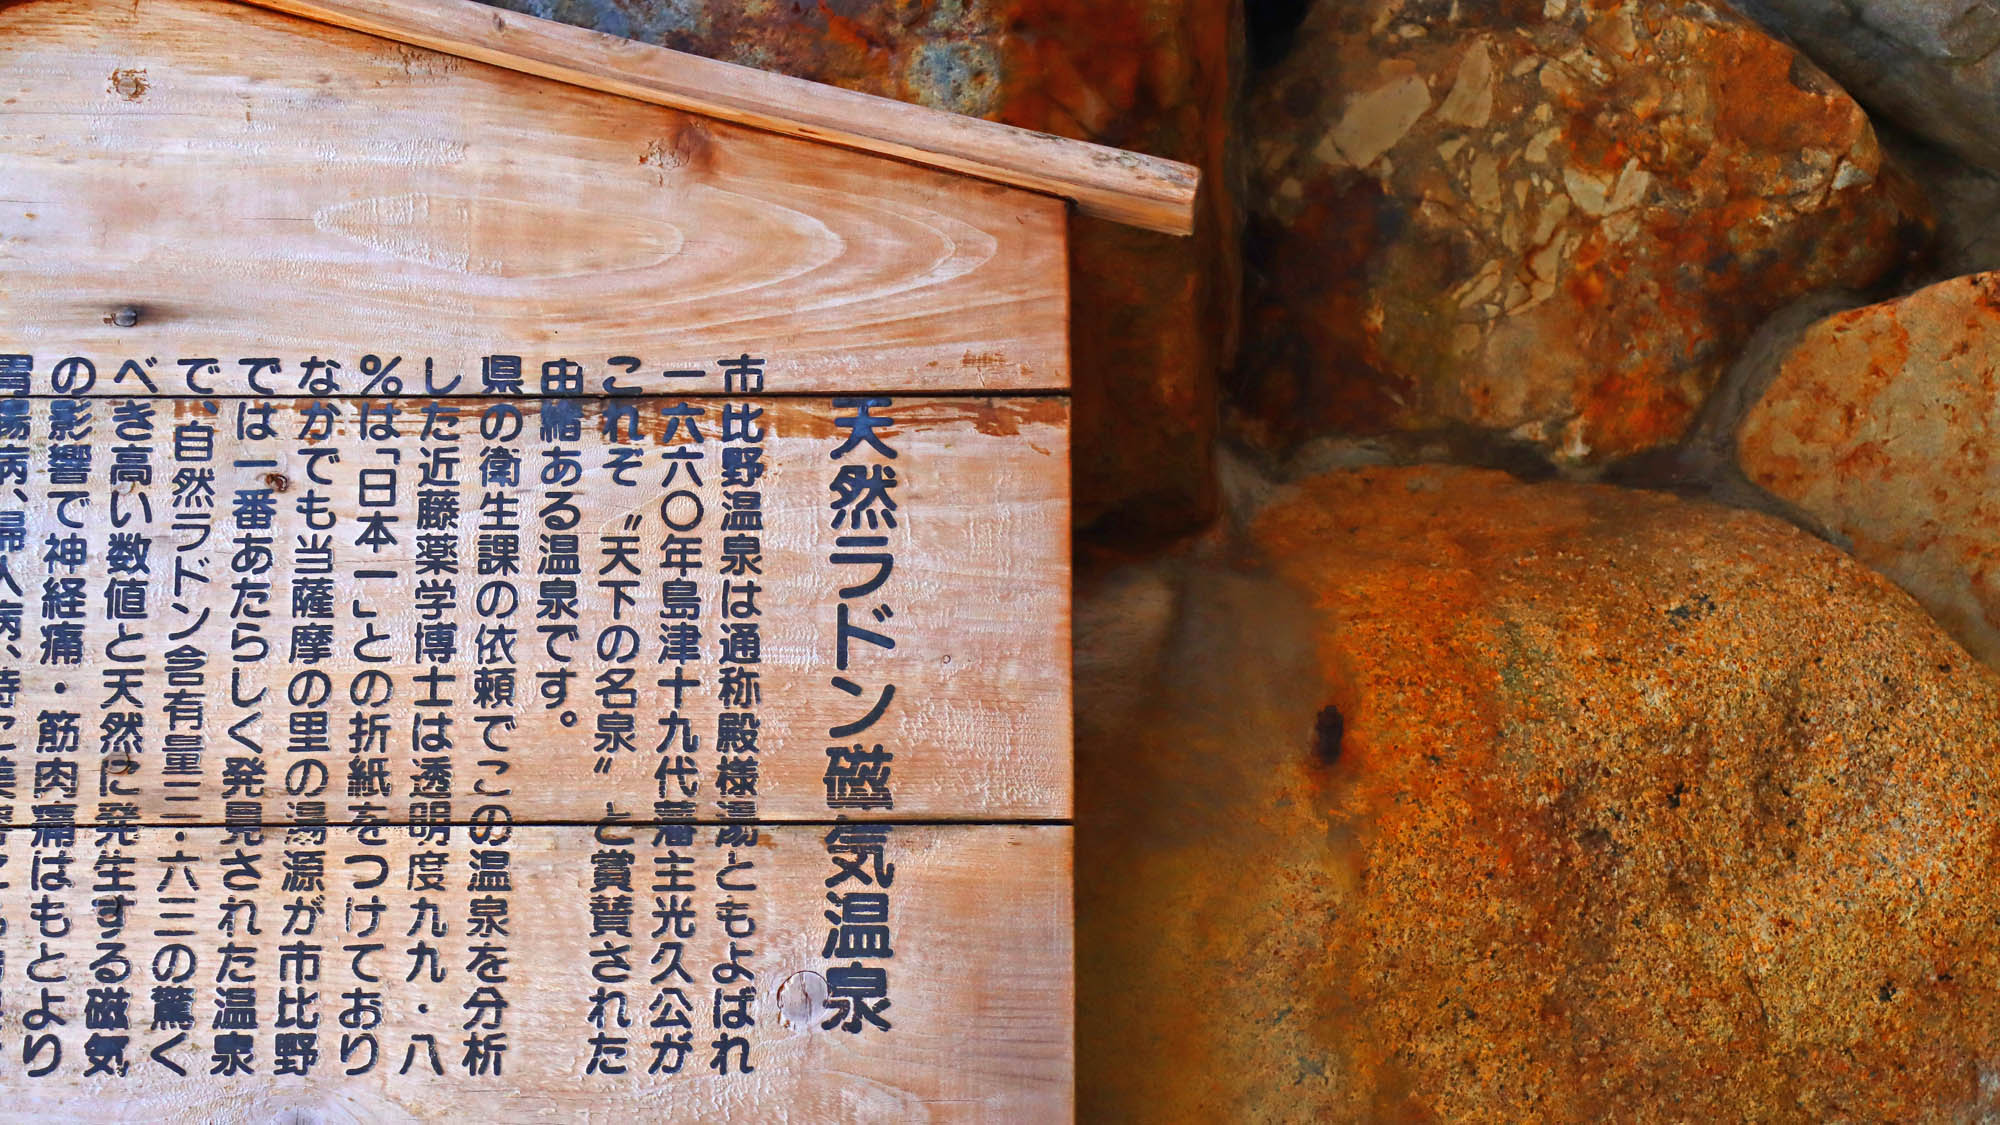 天然ラドン磁気温泉
市比野温泉は通称殿様湯ともよばれ
一六六〇年島津十九代藩主光久公が
これぞ〝天下の名泉〟と賞賛された
由緒ある温泉です。
県の衛生課の依頼でこの温泉を分析
した近藤薬学博士は透明度九九・八
%は「日本一」との折紙をつけており
なかでも当薩摩の里の湯源が市比野
では一番あたらしく発見された温泉
で、自然ラドン含有量三・六三の驚く
べき高い数値と天然に発生する磁気
の影響で神経痛・筋肉痛はもとより
胃腸病、婦人病、特に美容に